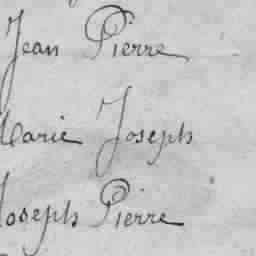 Jean Pierre
Marie Joseph
Joseph Pierre